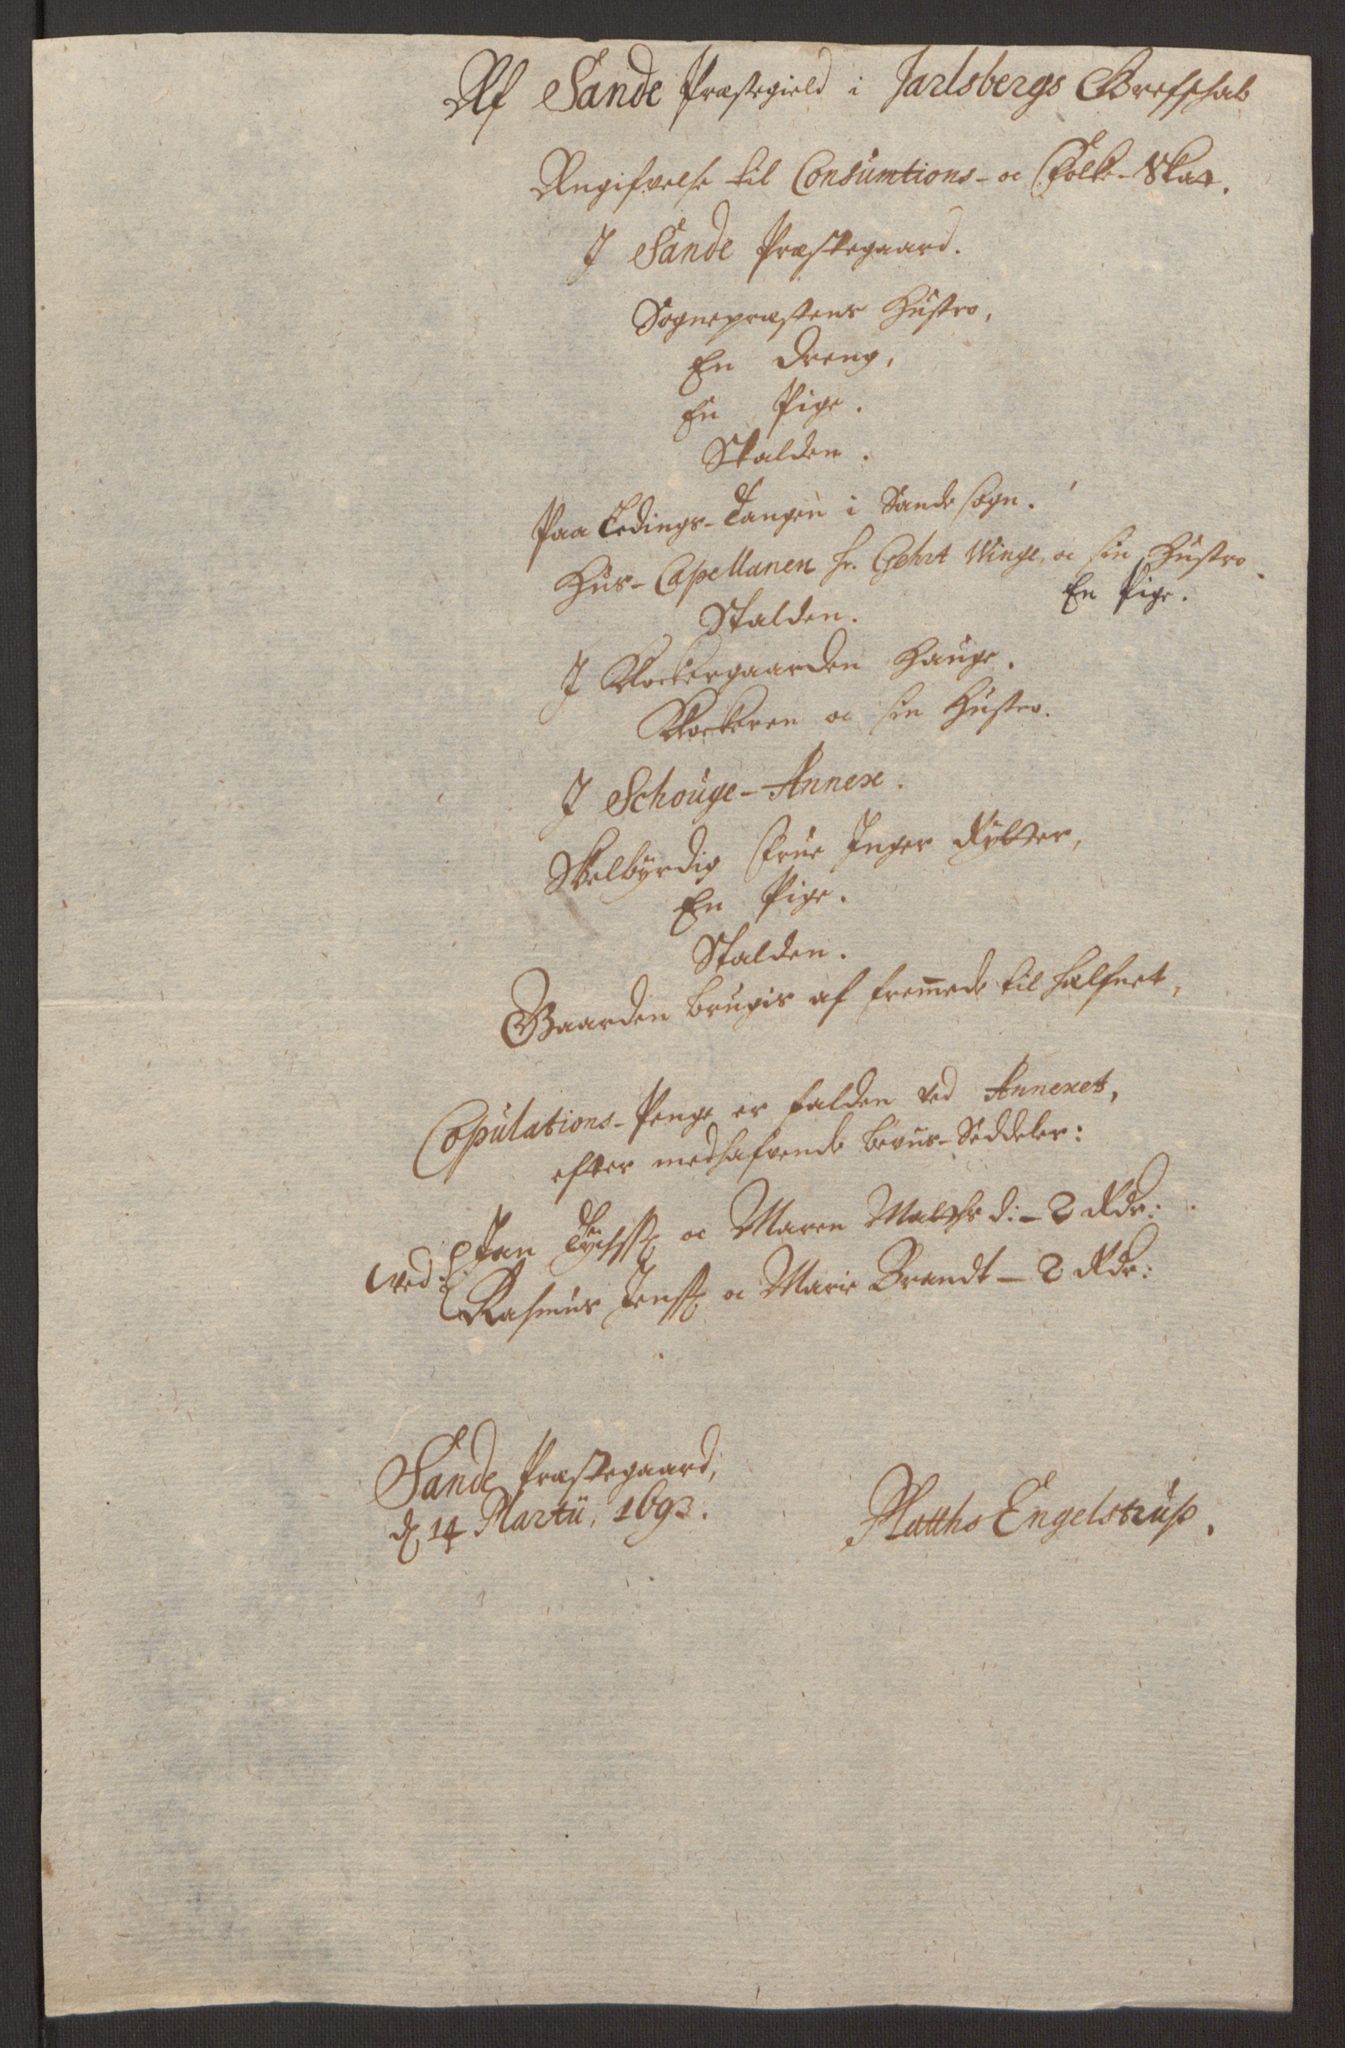 Af Sande Præstegield i Jarlsbergs Grefschab
Angifvelse til Consumtions- oc Folke-Skat.
J Sande Præstegaard.
Sognepræstens Hustro,
En Dreng,
En Pige.
Stalden.
Paa Tangen i Sande sogn.
Hus-Capellanen hr. Gehrt Winge, oc sin Hustro.
En Pige.
Stalden.
J Klockergaarden Hauge.
Klockeren oc sin Hustro.
J Schouge-Annex.
Velbyrdig Frue Inger Rytter,
En Pige.
Stalden.
Gaarden brugis af fremmede til halfnet,
Copulations-Penge er falden ved Annexet,
efter medhafvende beviis-Seddeler:
ved: Jan oc Maren Mathsd: - 2 Rdr:
Rasmus Jenss: oc Marie Brandt - 2 Rdr:
Sande Præstegaard,
d 14 Martii, 1693.
Matths Engelstrup.